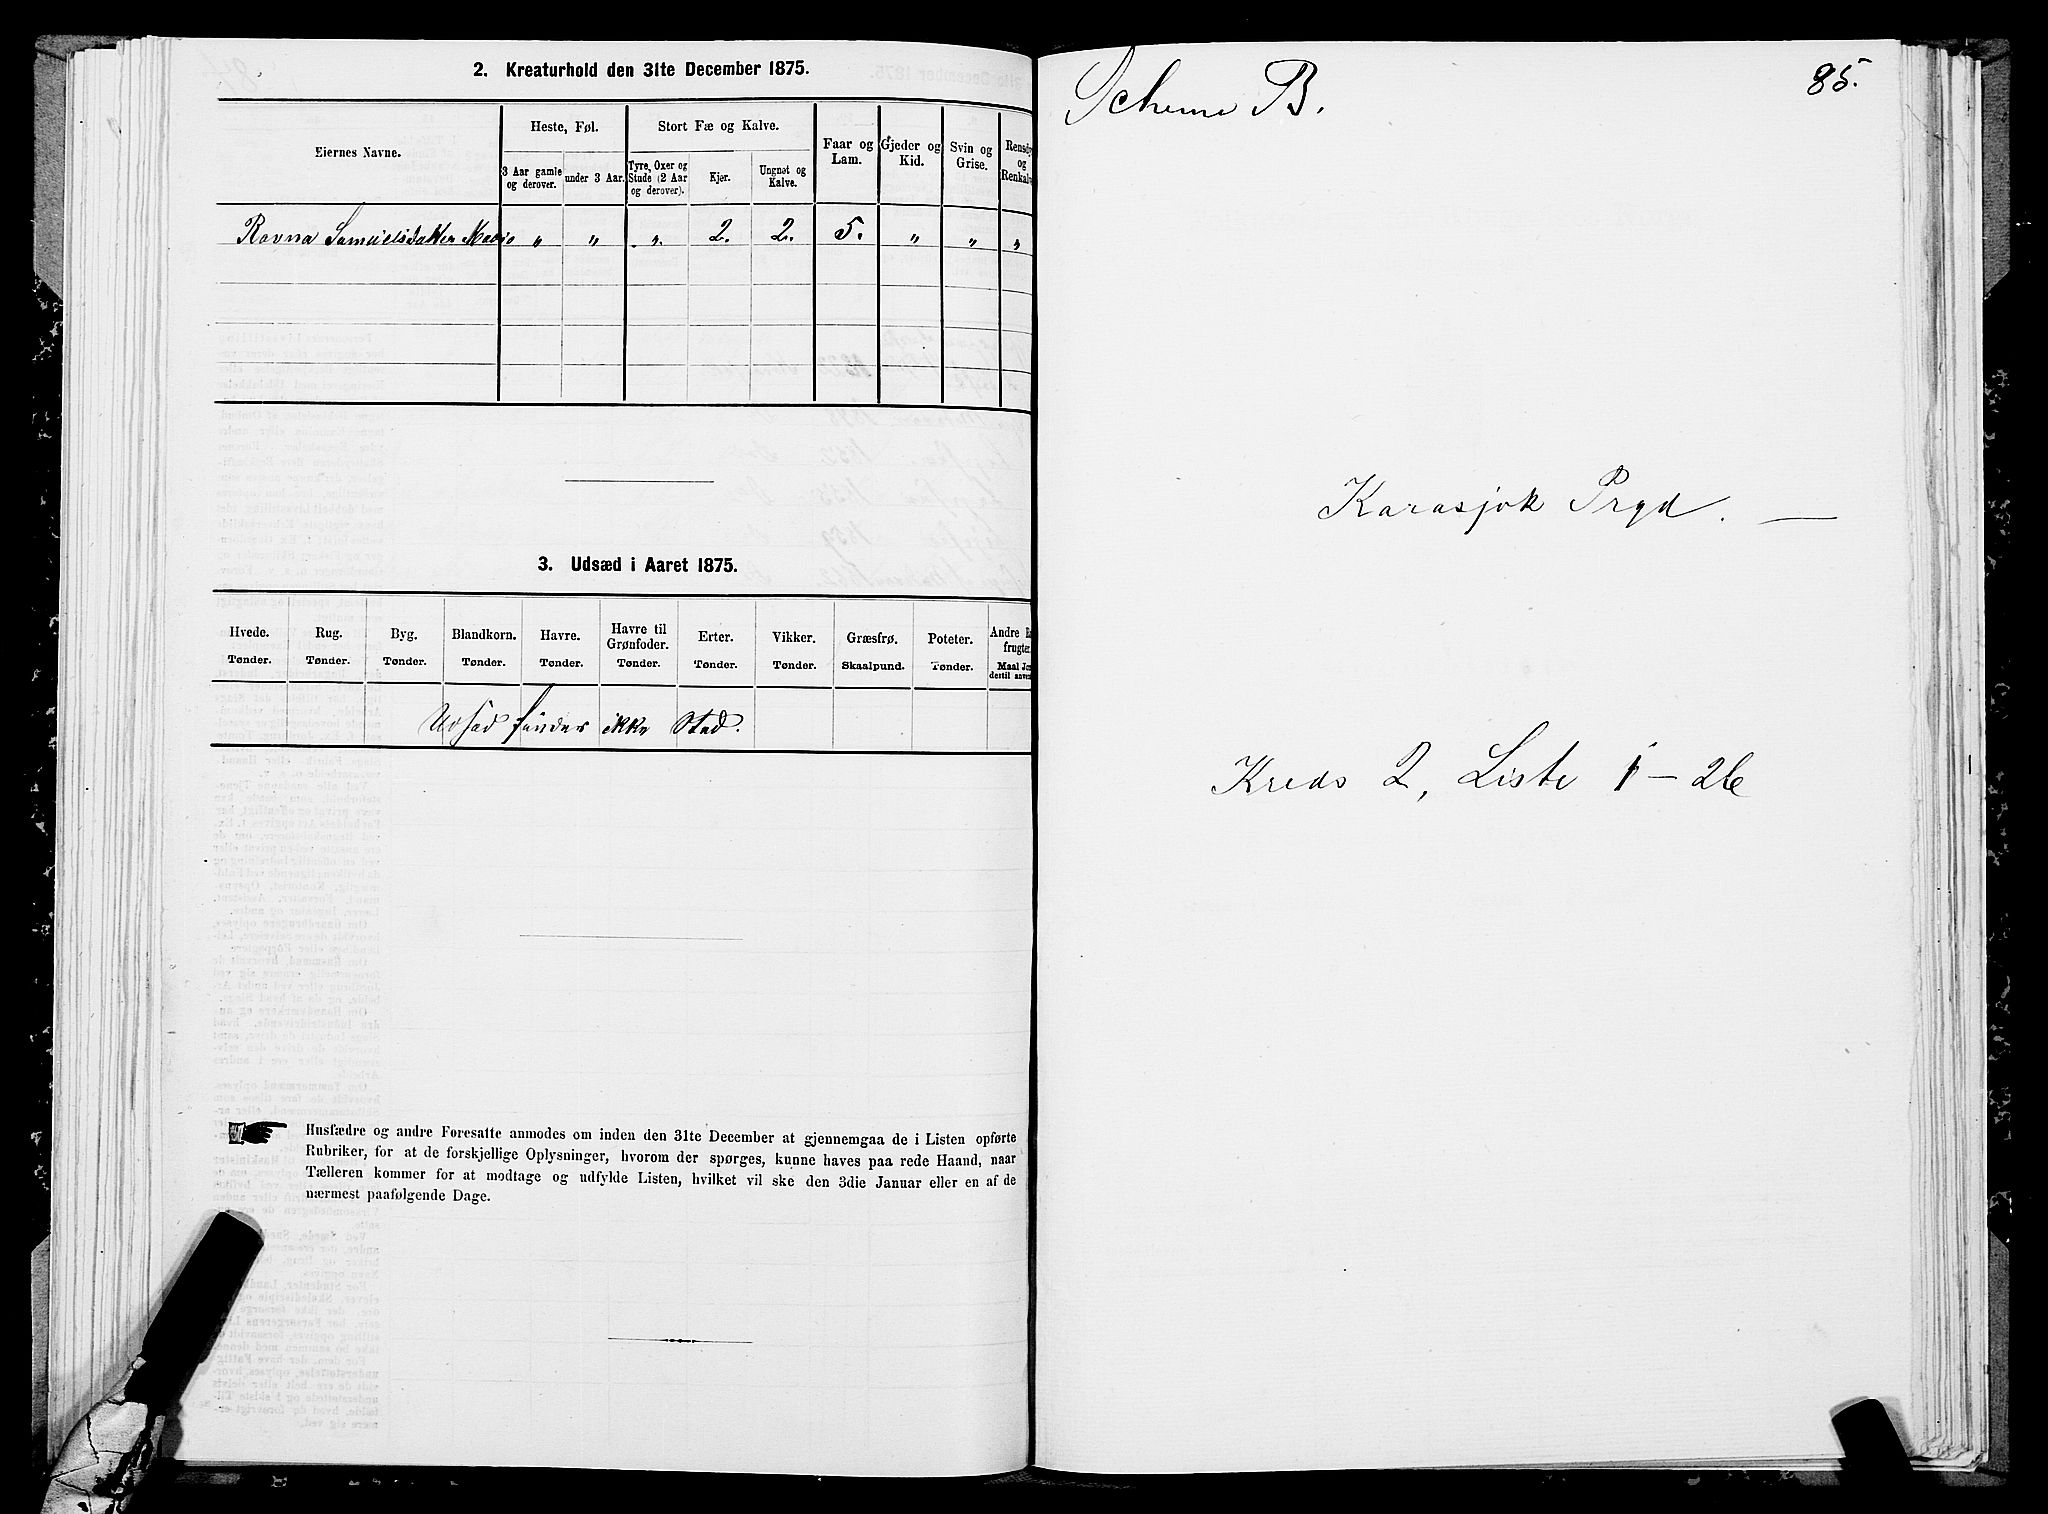 2. Kreaturhold den 31te December 1875.
Eiernes Navne.
Heste, Føl.
Stort Fæ og Kalve.
Faar og Lam.
Gjeder og Kid.
Svin og Grise.
Rensdy
og
Renkalv
3 Aar gamle og derover.
under 3 Aar.
Tyre, Oxer og Stude (2 Aar og derover).
Kjør.
Ungnøt og Kalve.
Ravna Samuelsdatter „ „ „ 2. 2. 5. „ „ „
3. Udsæd i Aaret 1875.
Hvede. Rug. Byg. Blandkorn. Havre. Havre til Grønfoder. Erter. Vikker. Græsfrø. Poteter. Andre
frugter
Tønder. Tønder. Tønder. Tønder. Tønder. Tønder. Tønder. Tønder. Skaalpund. Tønder. Maal
dertil
Udsæd finder ikke Sted.
Husfædre og andre Foresatte anmodes om inden den 31te December at gjennemgaa de i Listen opførte
Rubriker, for at de forskjellige Oplysninger, hvorom der spørges, kunne haves paa rede Haand, naar
Tælleren kommer for at modtage og udfylde Listen, hvilket vil ske den 3die Januar eller en af de
nærmest paafølgende Dage.
Schema B.
85.
Karasjok Prgd.
Kreds 2, Liste 1–26